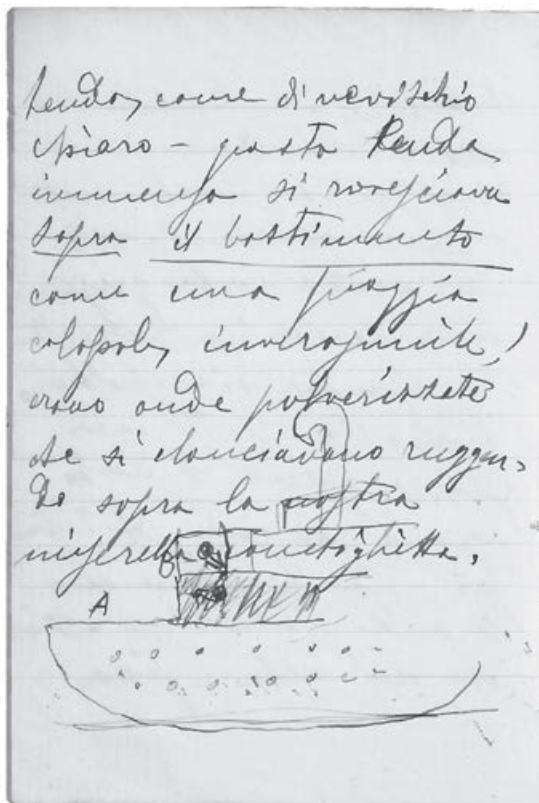 tenda, come di nevischio
chiaro - questa tenda
immensa si rovesciava
sopra il bastimento
come una pioggia
colossale, inverosimile!
erano onde polverizzate
che si slanciavano ruggen-
do sopra la nostra
miserella
A
B